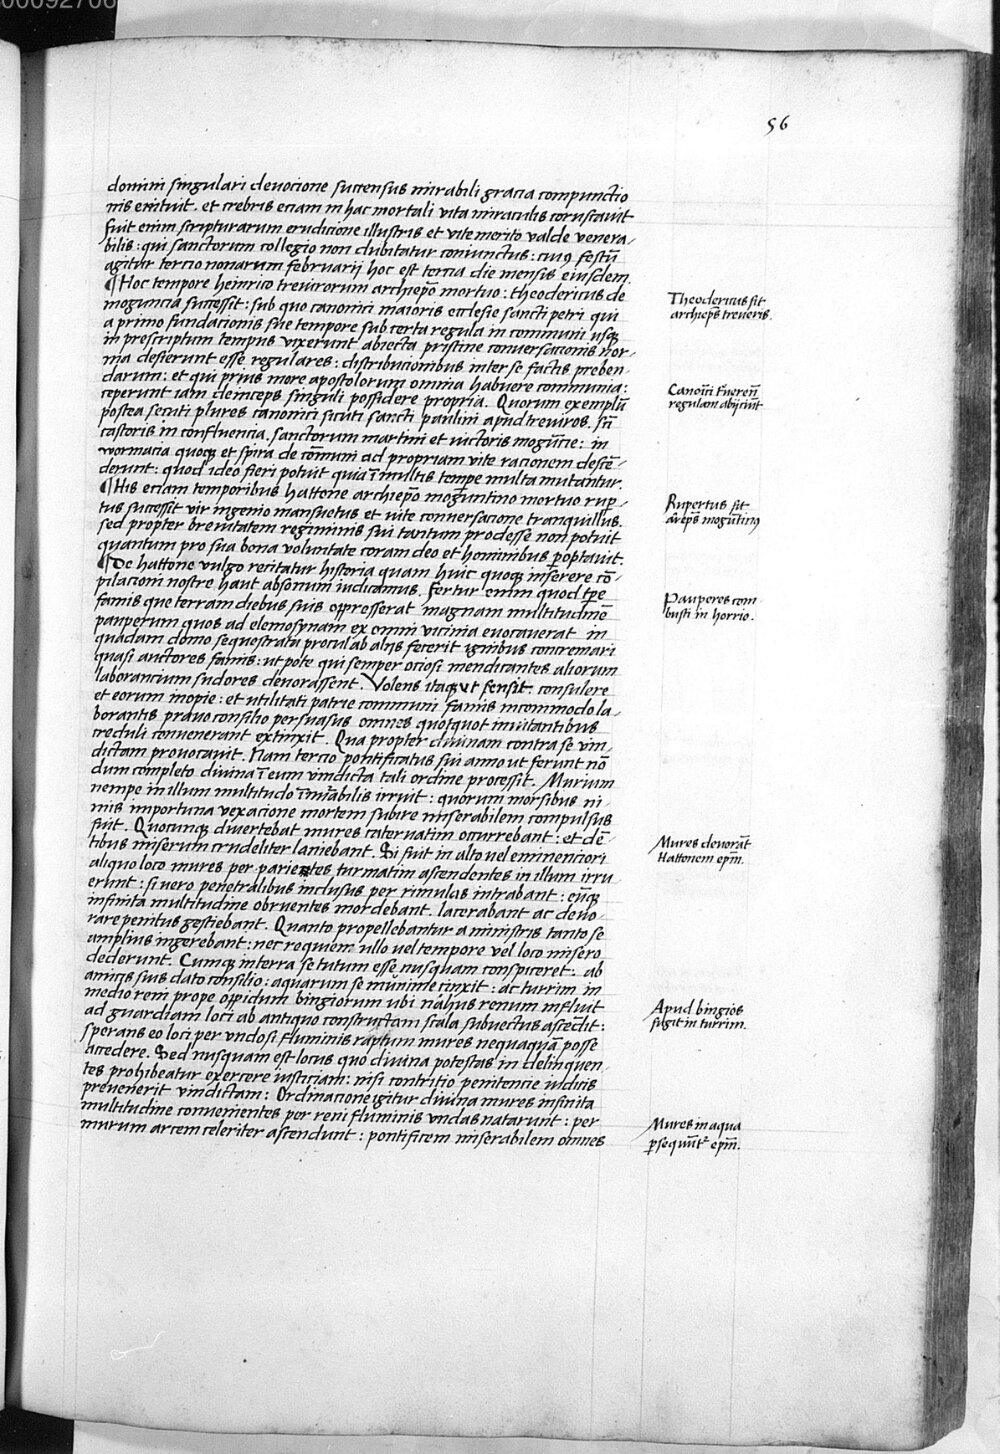 56
domini singulari devocione succensus mirabili gracia compunctio
nis enituit. et crebris eciam in hac mortali vita miraculis coruscavit
fuit enim scripturarum erudicione illustris et vite merito valde venera-
bilis: qui sanctorum collegio non dubitatur coniunctus: cuiꝰ festū
agitur tercio nonarum februarij hoc est tercia die mensis eiusdem.
¶Hoc tempore heinrico trevirorum archiepō mortuo: theodericus de
moguncia successit: sub quo canonici maioris ecclesie sancti petri qui
a primo fundacionis sue tempore sub certa regula in communi usqꝫ
in prescriptum tempus vixerunt abiecta pristine conversacionis nor-
ma desierunt esse regulares: distribucionibus inter se factis preben-
darum: et qui prius more apostolorum omnia habuere communia:
ceperunt iam deinceps singuli possidere propria. Quorum exemplū
postea secuti plures canonici sicuti sancti paulini apud treviros. sn̄
castoris in confluencia. sanctorum martini et victoris mogūcie: in
wormacia quoqꝫ et spira de cōmuni ad propriam vite racionem descē-
derunt: quod ideo fieri potuit quia ī multis tempe multa mutantur.
¶His eciam temporibus hattone archiepō moguntino mortuo ruper-
tus successit vir ingenio mansuetus et vite conversacione tranquillus.
sed propter brevitatem regiminis sui tantum prodesse non potuit
quantum pro sua bona voluntate coram deo et hominibus poptavit.
¶De hattone vulgo recitatur historia quam huic quoqꝫ inserere cō-
pilacioni nostre haut absonum iudicamus. Fertur enim quod tpe
famis que terram diebus suis oppresserat magnam multitudinē
pauperum quos ad elemosynam ex omni vicinia evocaverat in
quadam domo sequestrata procul ab alijs fecerit ignibus concremari
quasi auctores famis: ut pote qui semper ociosi mendicantes aliorum
laborancium sudores devorassent. Volens itaqꝫ ut sensit consulere
et eorum inopie: et utilitati patrie communi famis incommodo la-
borantis pravo consilio persuasus omnes quotquot invitantibus
creduli convenerant extinxit. Qua propter divinam contra se vin-
dictam provocavit. Nam tercio pontificatus sui anno ut ferunt nō
dum completo divina ī eum vindicta tali ordine processit. Murium
nempe in illum multitudo īnūabilis irruit: quorum morsibus ni-
mis importuna vexacione mortem subire miserabilem compulsus
fuit. Quocunqꝫ divertebat mures catervatim occurrebant: et dē-
tibus miserum crudeliter laniebant. Si fuit in alto vel eminenciori
aliquo loco mures per parietes turmatim ascendentes in illum irru
erunt: si vero penetralibus inclusus per rimulas intrabant: eūqꝫ
infinita multitudine obruentes mordebant. lacerabant ac devo-
rare penitus gestiebant. Quanto propellebantur a ministris tanto se
amplius ingerebant: nec requiem ullo vel tempore vel loco misero
dederunt. Cumqꝫ in terra se tutum esse nusquam conspiceret: ab
amicis suis dato consilio: aquarum se munime cinxit: ac turrim in
medio reni prope oppidum bingiorum ubi nahus renum influit
ad guardiam loci ab antiquo constructam scala subvectus ascēdit:
sperans eo loci per undosi fluminis raptum mures nequaquā posse
accedere. Sed nusquam est locus quo divina potestas in delinquen-
tes prohibeatur exercere iusticiam: nisi contritio penitencie iudicis
prevenerit vindictam: Ordinacione igitur divina mures infinita
multitudine convenientes per reni fluminis undas natarunt: per
murum arcem celeriter ascendunt: pontificem miserabilem omnes
Theodericus fit
archiepš treveris.
Canoīci t͞veren̄
regulam abijciūt
Rupertus fit
areepš mogūtinꝰ
Pauperes com
busti in horrio.
Mures devorāt
Hattonem epm̄.
Apud bingios
fugit in turrim.
Mures in aqua
psequūtʳ epm̄.